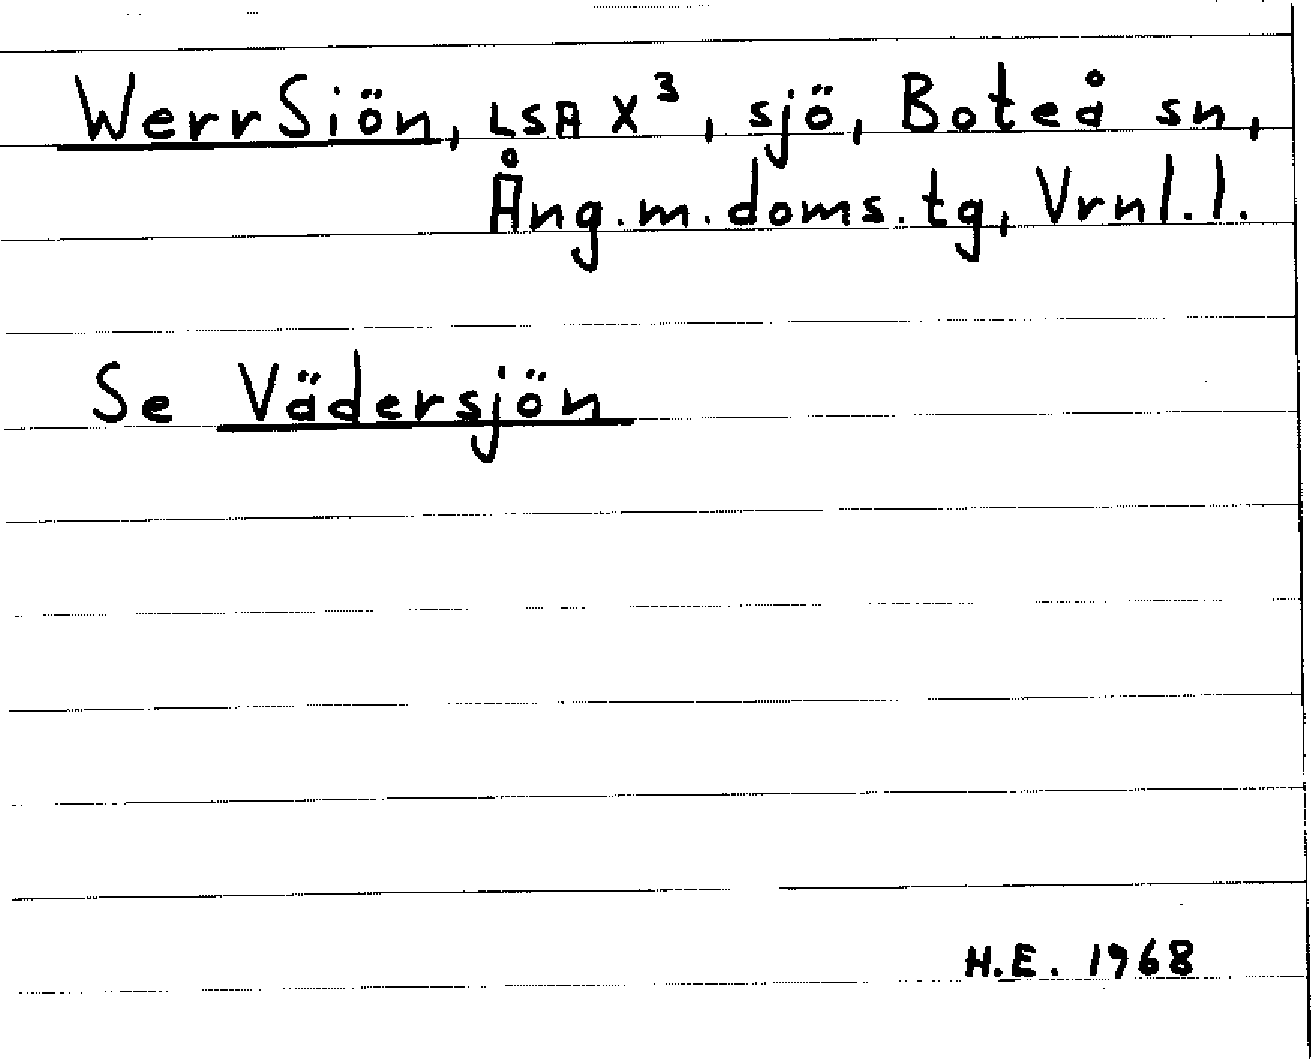 WerrSiön, LSA X³, sjö, Boteå sn,
Ång.m.doms.tg, Vrnl.l.
Se Vädersjön
H.E. 1968